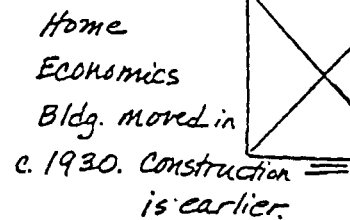 Home
Economics
Bldg. moved in
c. 1930. Construction
is earlier.